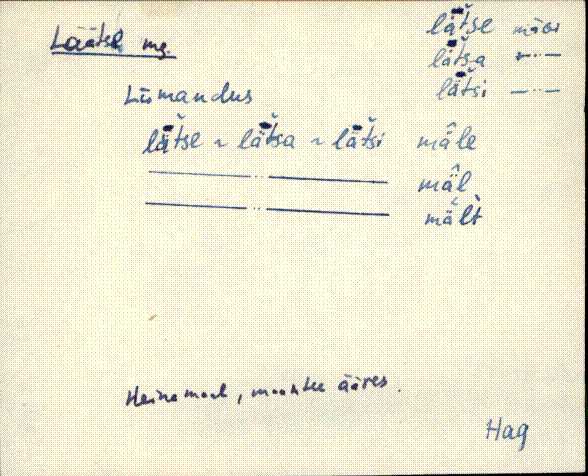 Läätse mg. lät́se mägi
lät́sa —··—
lät́si —··—
Liismandus
lät́se ~ lät́sa ~ lät́si mäle
——··—— mäl
——··—— mält
Heinamaal, maantee ääres.
Hag